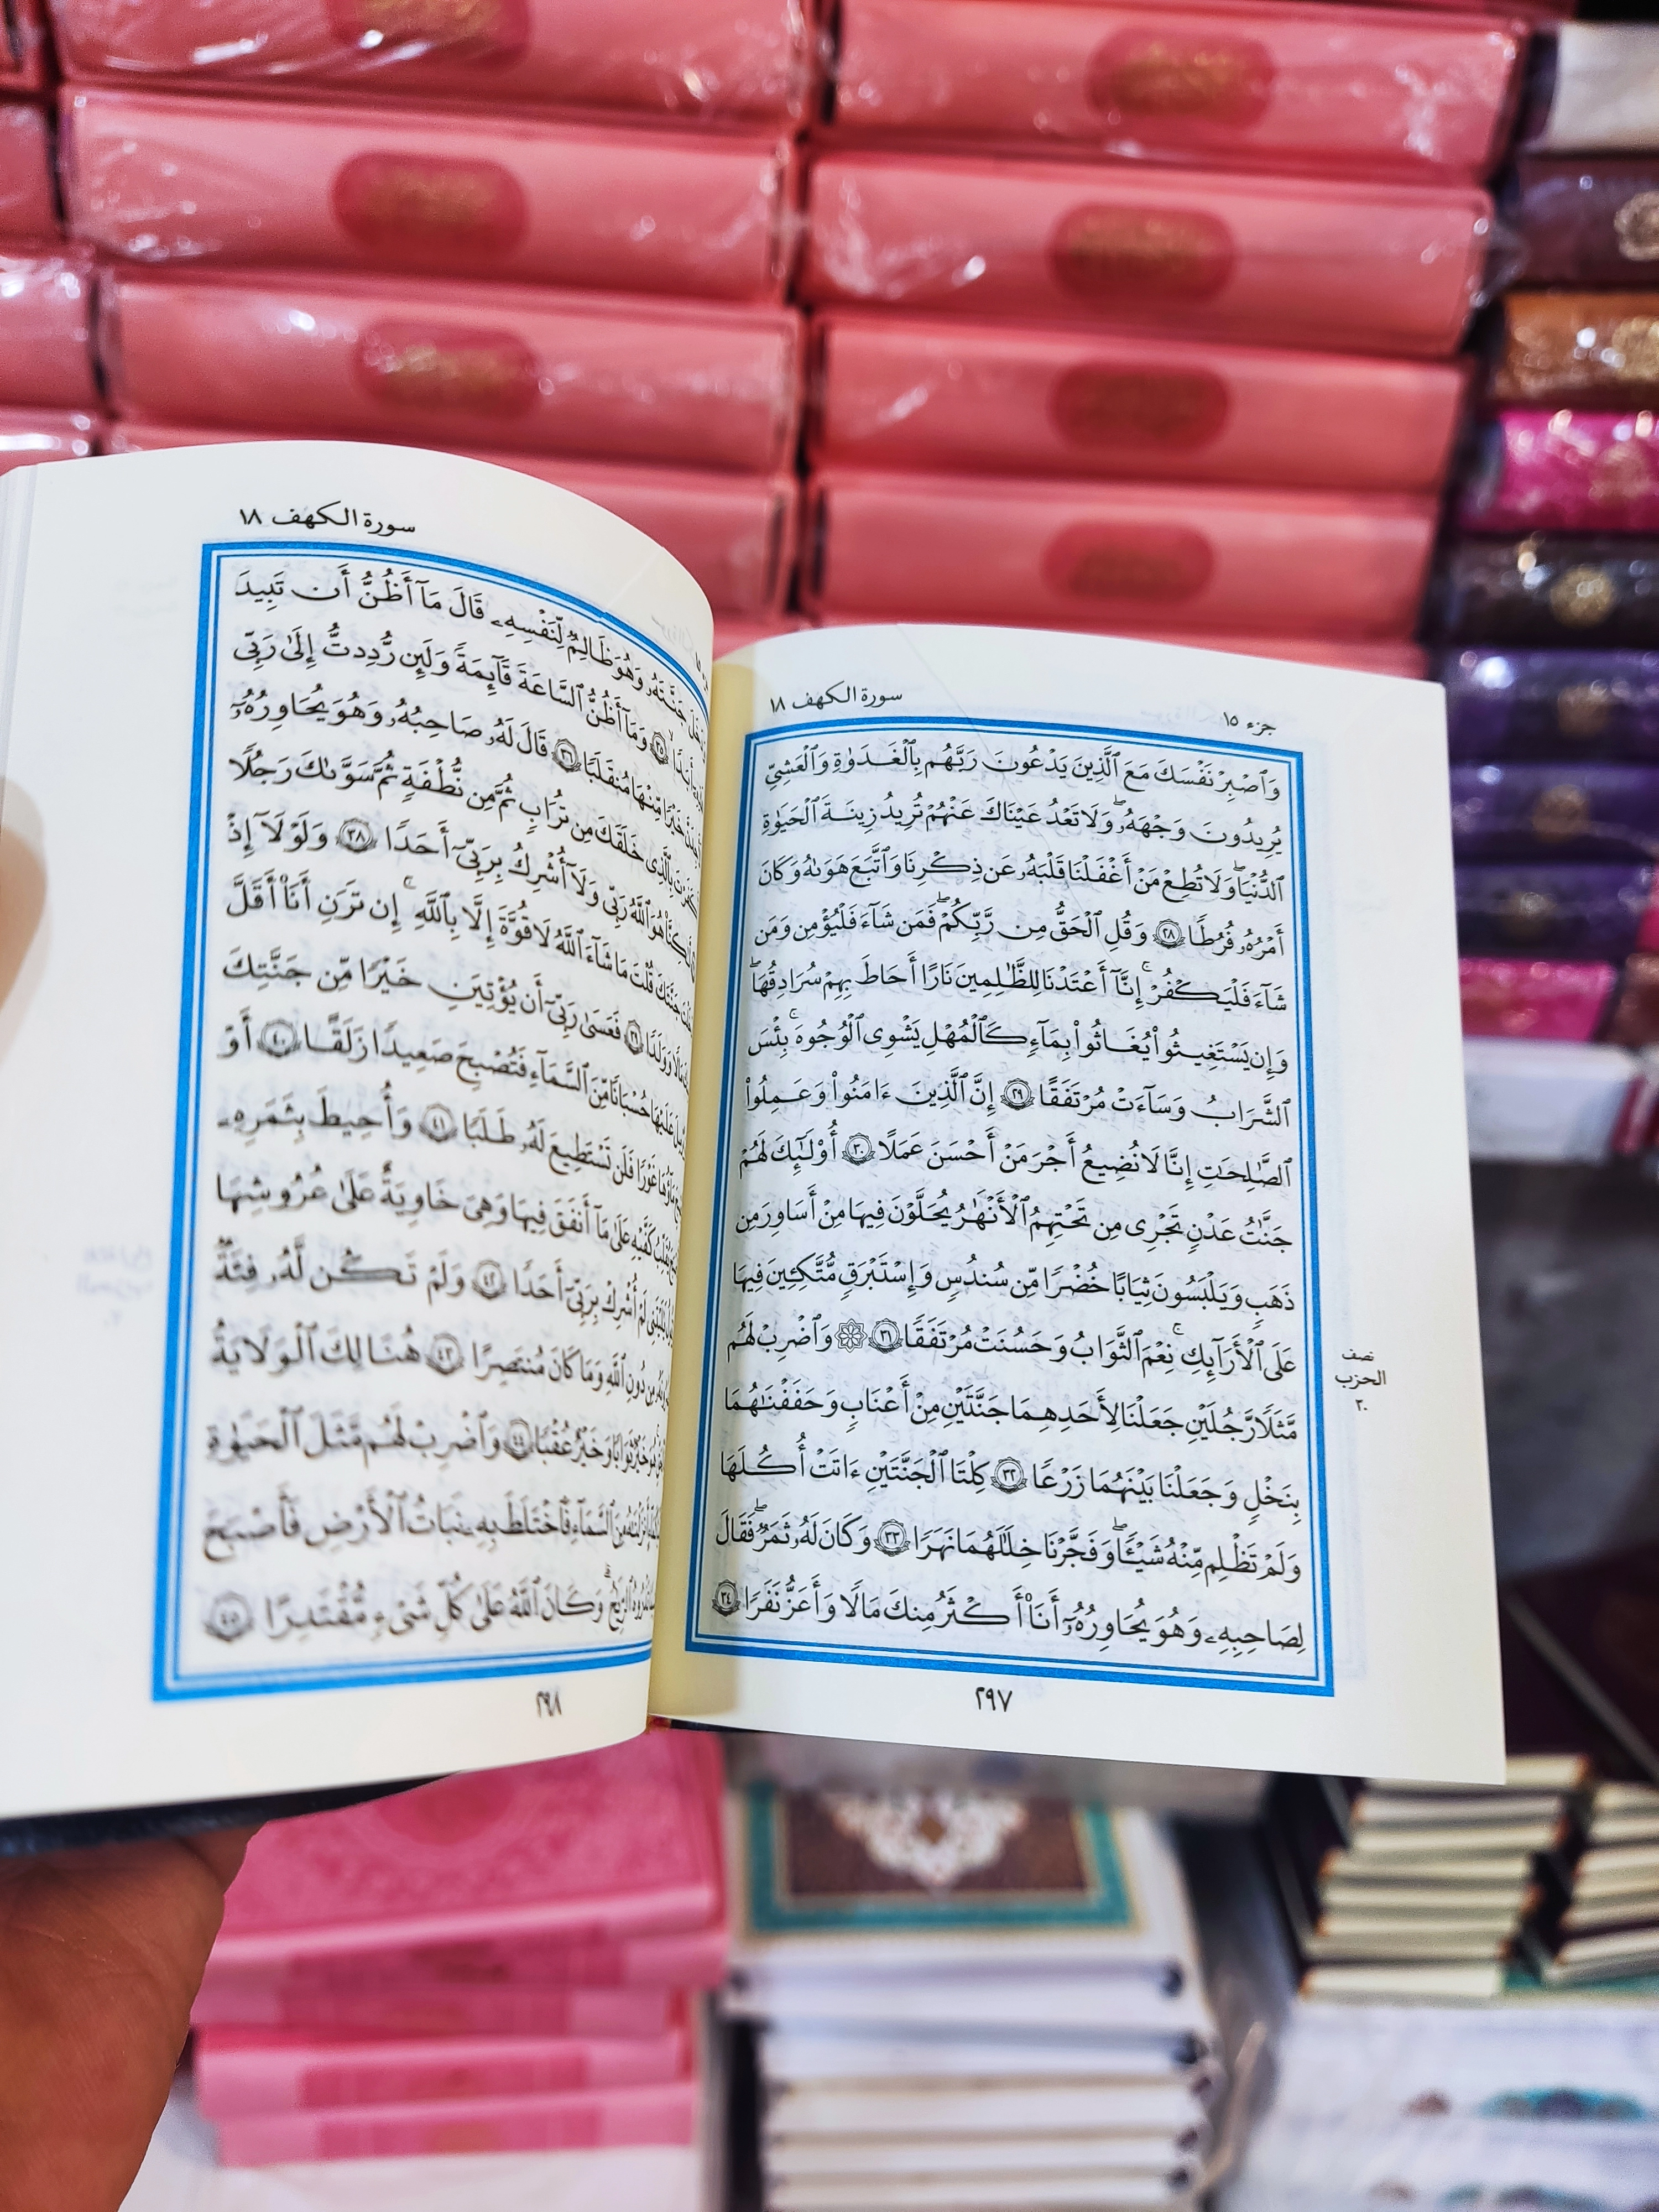 جزء ١٥
سورة الكهف ١٨
وَٱصْبِرْ نَفْسَكَ مَعَ ٱلَّذِينَ يَدْعُونَ رَبَّهُم بِٱلْغَدَوٰةِ وَٱلْعَشِيِّ
يُرِيدُونَ وَجْهَهُۥۖ وَلَا تَعْدُ عَيْنَاكَ عَنْهُمْ تُرِيدُ زِينَةَ ٱلْحَيَوٰةِ
ٱلدُّنْيَاۖ وَلَا تُطِعْ مَنْ أَغْفَلْنَا قَلْبَهُۥ عَن ذِكْرِنَا وَٱتَّبَعَ هَوَىٰهُ وَكَانَ
أَمْرُهُۥ فُرُطًا ٢٨ وَقُلِ ٱلْحَقُّ مِن رَّبِّكُمْۖ فَمَن شَآءَ فَلْيُؤْمِن وَمَن
شَآءَ فَلْيَكْفُرْۚ إِنَّآ أَعْتَدْنَا لِلظَّٰلِمِينَ نَارًا أَحَاطَ بِهِمْ سُرَادِقُهَاۚ
وَإِن يَسْتَغِيثُوا۟ يُغَاثُوا۟ بِمَآءٍ كَٱلْمُهْلِ يَشْوِى ٱلْوُجُوهَۚ بِئْسَ
ٱلشَّرَابُ وَسَآءَتْ مُرْتَفَقًا ٢٩ إِنَّ ٱلَّذِينَ ءَامَنُوا۟ وَعَمِلُوا۟
ٱلصَّٰلِحَٰتِ إِنَّا لَا نُضِيعُ أَجْرَ مَنْ أَحْسَنَ عَمَلًا ٣٠ أُو۟لَٰٓئِكَ لَهُمْ
جَنَّٰتُ عَدْنٍ تَجْرِى مِن تَحْتِهِمُ ٱلْأَنْهَٰرُ يُحَلَّوْنَ فِيهَا مِنْ أَسَاوِرَ مِن
ذَهَبٍ وَيَلْبَسُونَ ثِيَابًا خُضْرًا مِّن سُندُسٍ وَإِسْتَبْرَقٍ مُّتَّكِـِٔينَ فِيهَا
عَلَى ٱلْأَرَآئِكِۚ نِعْمَ ٱلثَّوَابُ وَحَسُنَتْ مُرْتَفَقًا ٣١ ۞ وَٱضْرِبْ لَهُم
مَّثَلًا رَّجُلَيْنِ جَعَلْنَا لِأَحَدِهِمَا جَنَّتَيْنِ مِنْ أَعْنَٰبٍ وَحَفَفْنَٰهُمَا
بِنَخْلٍ وَجَعَلْنَا بَيْنَهُمَا زَرْعًا ٣٢ كِلْتَا ٱلْجَنَّتَيْنِ ءَاتَتْ أُكُلَهَا
وَلَمْ تَظْلِم مِّنْهُ شَيْـًٔاۚ وَفَجَّرْنَا خِلَٰلَهُمَا نَهَرًا ٣٣ وَكَانَ لَهُۥ ثَمَرٌ فَقَالَ
لِصَٰحِبِهِۦ وَهُوَ يُحَاوِرُهُۥٓ أَنَا۠ أَكْثَرُ مِنكَ مَالًا وَأَعَزُّ نَفَرًا ٣٤
نصف
الحزب
٣٠
٢٩٧
سورة الكهف ١٨
جَنَّتَهُۥ وَهُوَ ظَالِمٌ لِّنَفْسِهِۦ قَالَ مَآ أَظُنُّ أَن تَبِيدَ
أَبَدًا ٣٥ وَمَآ أَظُنُّ ٱلسَّاعَةَ قَآئِمَةً وَلَئِن رُّدِدتُّ إِلَىٰ رَبِّى
خَيْرًا مِّنْهَا مُنقَلَبًا ٣٦ قَالَ لَهُۥ صَاحِبُهُۥ وَهُوَ يُحَاوِرُهُۥٓ
بِٱلَّذِى خَلَقَكَ مِن تُرَابٍ ثُمَّ مِن نُّطْفَةٍ ثُمَّ سَوَّىٰكَ رَجُلًا
هُوَ ٱللَّهُ رَبِّى وَلَآ أُشْرِكُ بِرَبِّىٓ أَحَدًا ٣٨ وَلَوْلَآ إِذْ
جَنَّتَكَ قُلْتَ مَا شَآءَ ٱللَّهُ لَا قُوَّةَ إِلَّا بِٱللَّهِۚ إِن تَرَنِ أَنَا۠ أَقَلَّ
وَوَلَدًا ٣٩ فَعَسَىٰ رَبِّىٓ أَن يُؤْتِيَنِ خَيْرًا مِّن جَنَّتِكَ
عَلَيْهَا حُسْبَانًا مِّنَ ٱلسَّمَآءِ فَتُصْبِحَ صَعِيدًا زَلَقًا ٤٠ أَوْ
مَآؤُهَا غَوْرًا فَلَن تَسْتَطِيعَ لَهُۥ طَلَبًا ٤١ وَأُحِيطَ بِثَمَرِهِۦ
يُقَلِّبُ كَفَّيْهِ عَلَىٰ مَآ أَنفَقَ فِيهَا وَهِىَ خَاوِيَةٌ عَلَىٰ عُرُوشِهَا
لَمْ أُشْرِكْ بِرَبِّىٓ أَحَدًا ٤٢ وَلَمْ تَكُن لَّهُۥ فِئَةٌ
مِن دُونِ ٱللَّهِ وَمَا كَانَ مُنتَصِرًا ٤٣ هُنَالِكَ ٱلْوَلَٰيَةُ
خَيْرٌ ثَوَابًا وَخَيْرٌ عُقْبًا ٤٤ وَٱضْرِبْ لَهُم مَّثَلَ ٱلْحَيَوٰةِ
مِنَ ٱلسَّمَآءِ فَٱخْتَلَطَ بِهِۦ نَبَاتُ ٱلْأَرْضِ فَأَصْبَحَ
ٱلرِّيَٰحُۗ وَكَانَ ٱللَّهُ عَلَىٰ كُلِّ شَىْءٍ مُّقْتَدِرًا ٤٥
٢٩٨